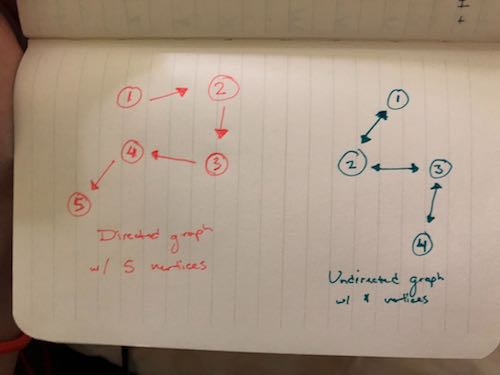 1
2
4
3
5
Directed graph
w/ 5 vertices
1
2
3
4
Undirected graph
w/ vertices